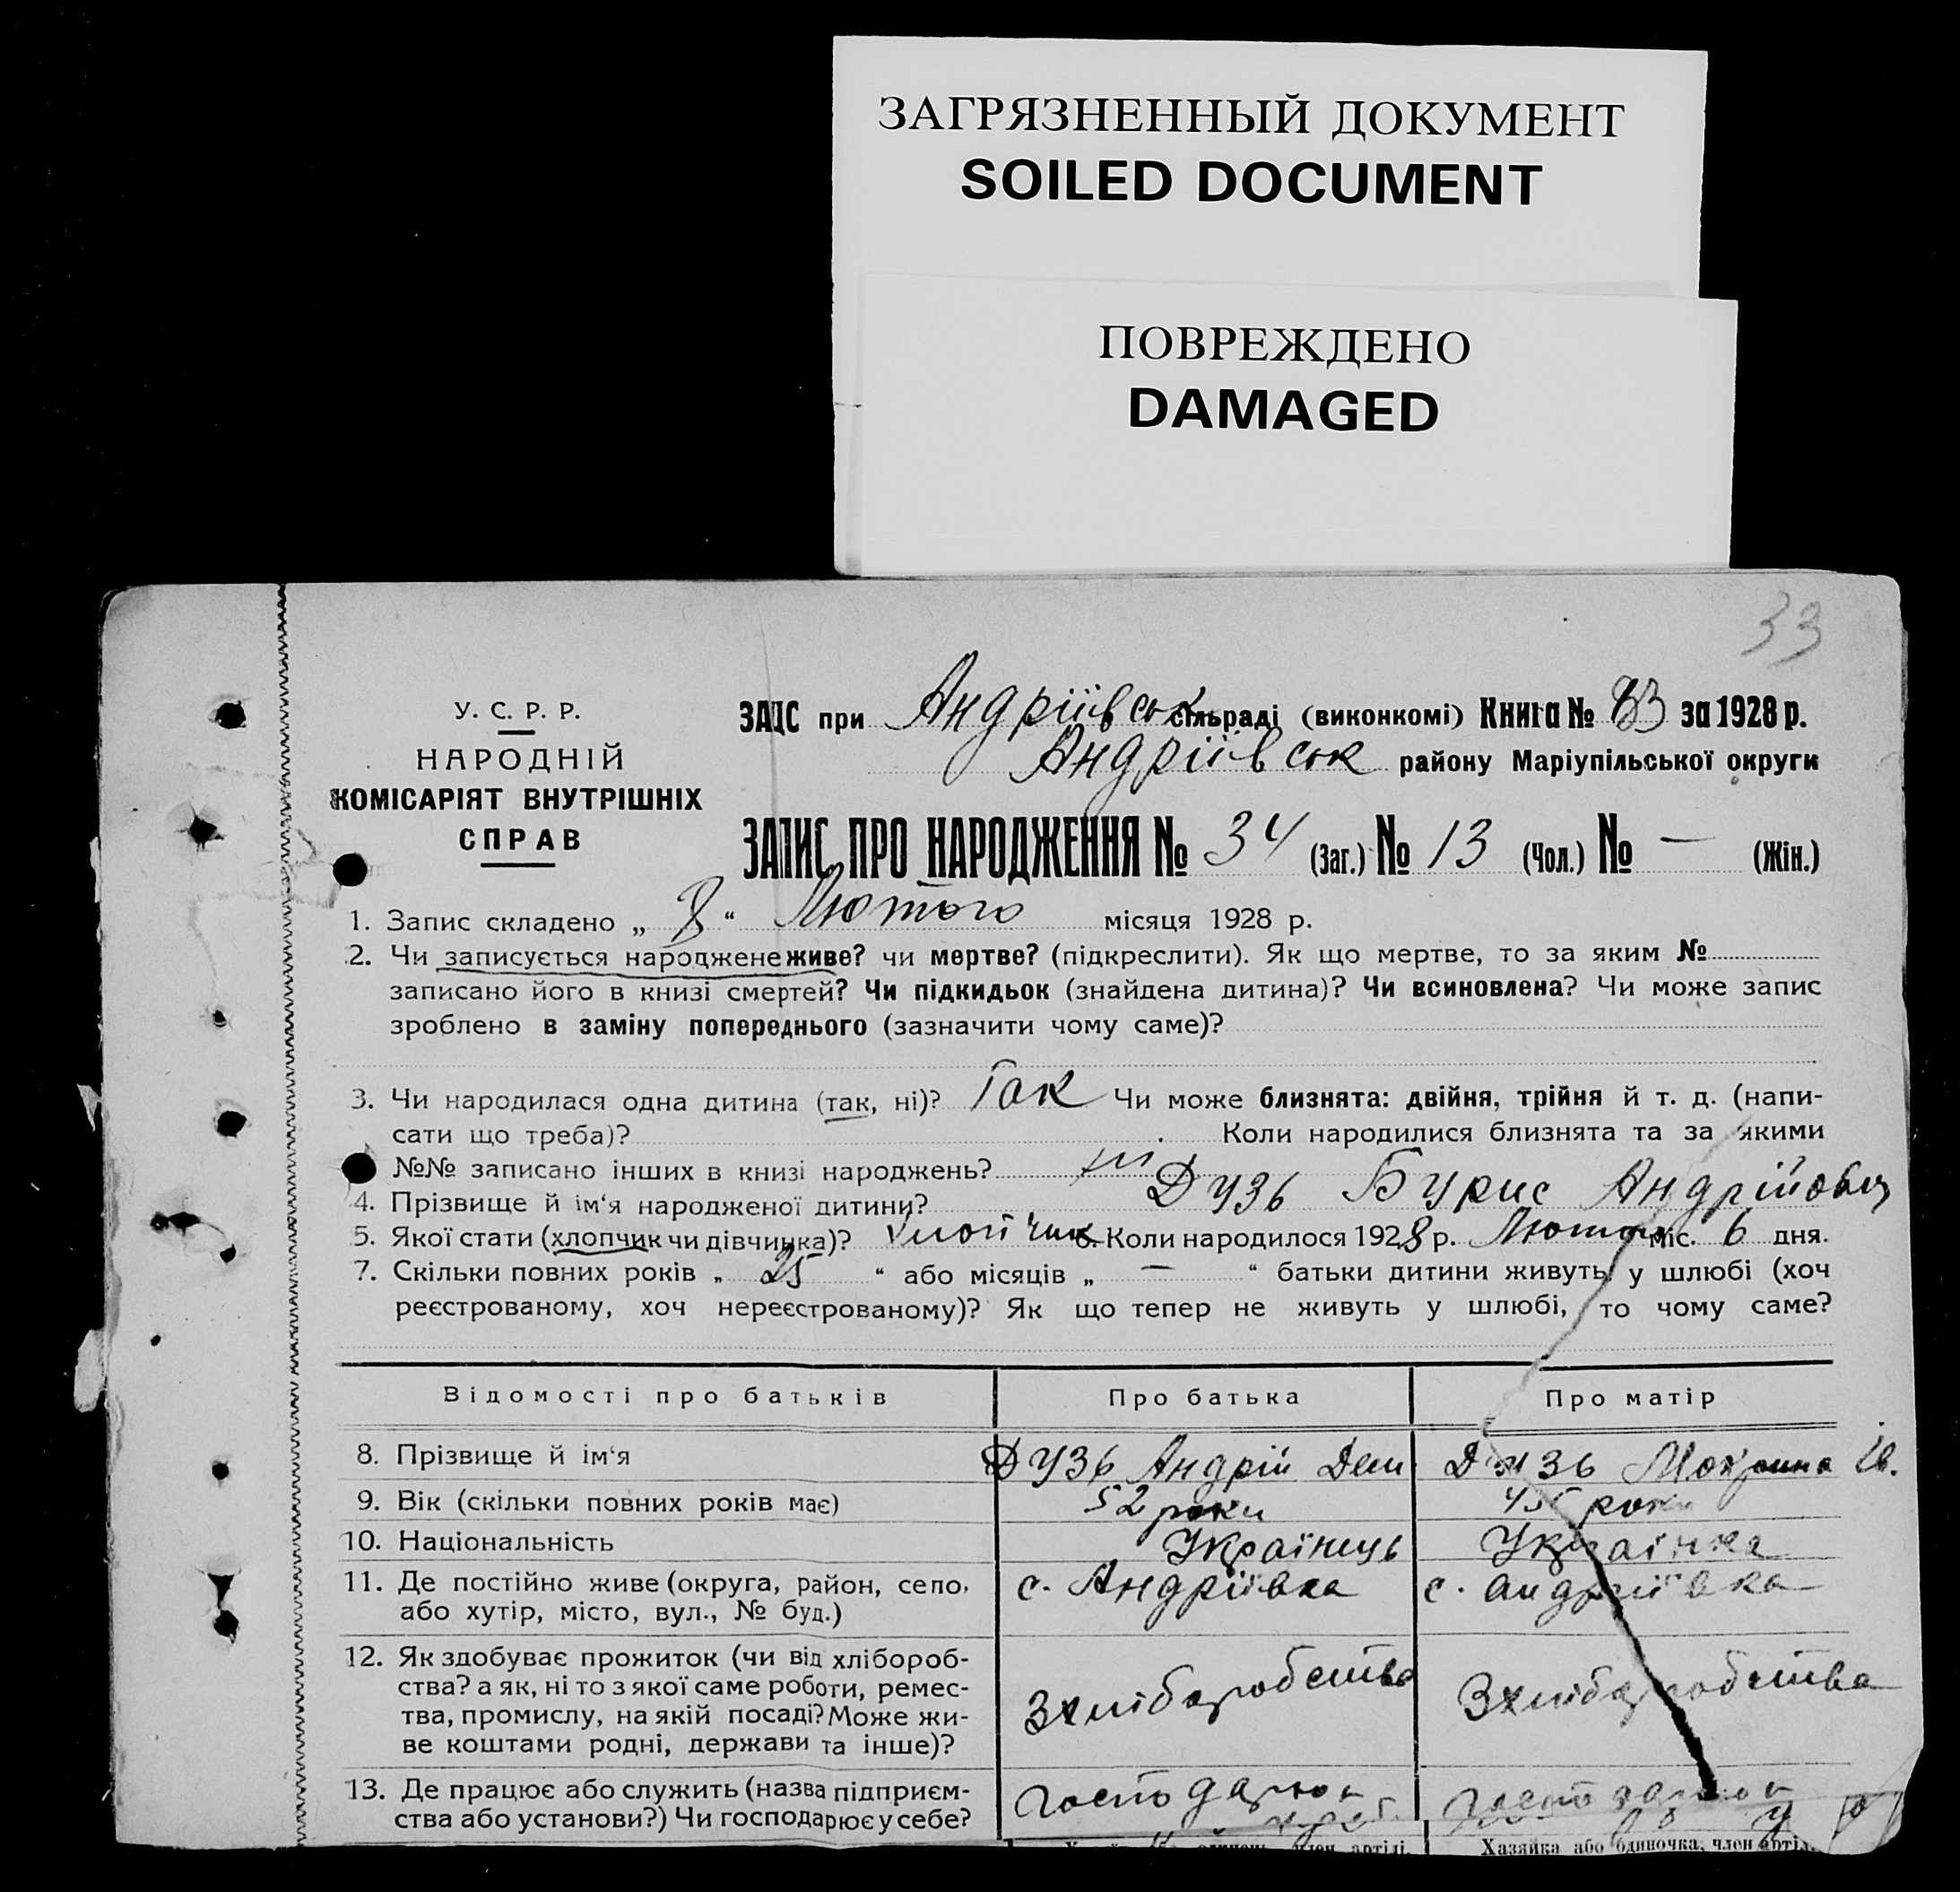 ЗАГРЯЗНЕННЫЙ ДОКУМЕНТ
SOILED DOCUMENT
ПОВРЕЖДЕНО
DAMAGED
33
У. С. Р. Р.
НАРОДНІЙ
КОМІСАРІЯТ ВНУТРІШНІХ
СПРАВ
ЗАЦС при Андріївськ сільраді (виконкомі) Книга № за 1928 р.
Андріївськ району Маріупільської округи
ЗАПИС ПРО НАРОДЖЕННЯ № 34 (Заг.) № 13 (Чол.) № — (Жін.)
1. Запис складено „ 8 “ Лютого місяця 1928 р.
2. Чи записується народжене живе? чи мертве? (підкреслити). Як що мертве, то за яким №
записано його в книзі смертей? Чи підкидьок (знайдена дитина)? Чи всиновлена? Чи може запис
зроблено в заміну попереднього (зазначити чому саме)?
3. Чи народилася одна дитина (так, ні)? Так Чи може близнята: двійня, трійня й т. д. (напи-
сати що треба)? Коли народилися близнята та за якими
№№ записано інших в книзі народжень?
4. Прізвище й ім‘я народженої дитини? Дузь Бурис Андрійович
5. Якої стати (хлопчик чи дівчинка)? 6. Коли народилося 1928 р. Лютого міс. 6 дня.
7. Скільки повних років „ 25 “ або місяців „ — “ батьки дитини живуть у шлюбі (хоч
реєстрованому, хоч нереєстрованому)? Як що тепер не живуть у шлюбі, то чому саме?
Відомості про батьків Про батька Про матір
8. Прізвище й ім‘я Дузь Андрій Дем. Дузь Мокрина Ів.
9. Вік (скільки повних років має) 52 роки 45 роки
10. Національність Українець Українка
11. Де постійно живе (округа, район, село, с. Андріївка с. Андріївка
або хутір, місто, вул., № буд.)
12. Як здобуває прожиток (чи від хлібороб-
ства? а як, ні то з якої саме роботи, ремес- З хліборобства З хліборобства
тва, промислу, на якій посаді? Може жи-
ве коштами родні, держави та інше)?
13. Де працює або служить (назва підприєм-
ства або установи?) Чи господарює у себе?
член артілі. Хазяйка або одиночка, член артіл